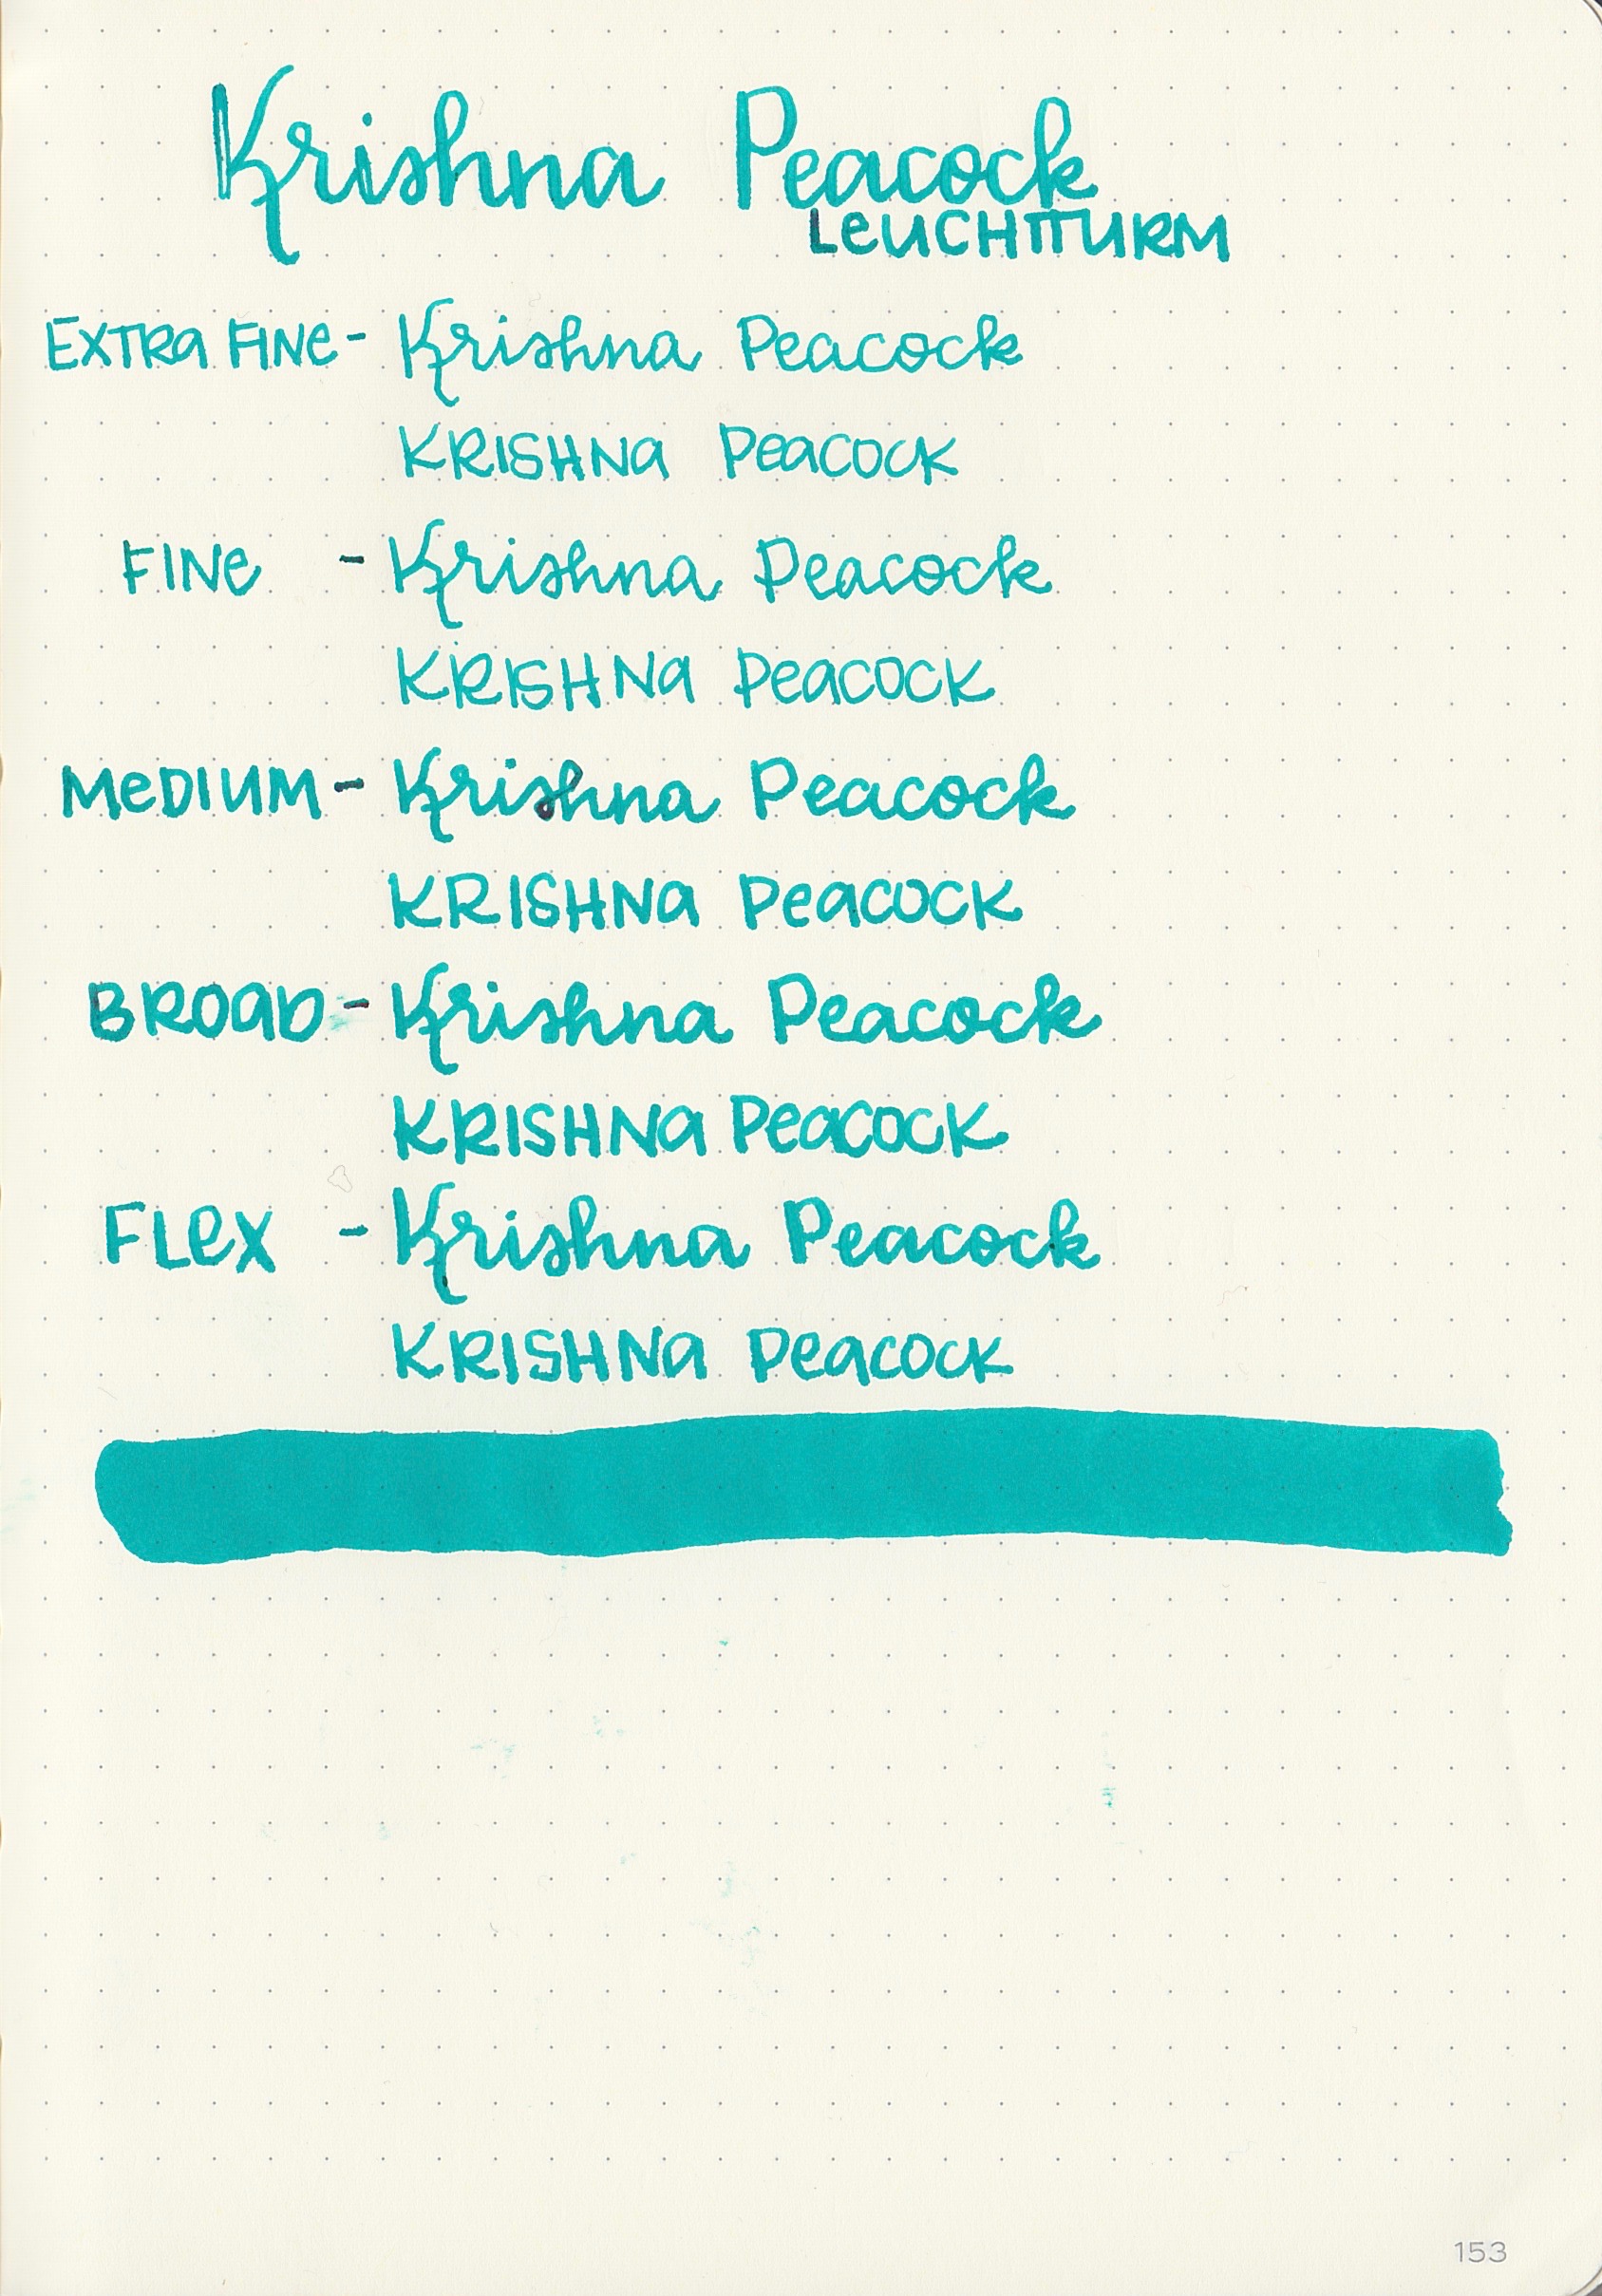 Krishna Peacock
LeUCHTTURM
EXTRa FINe - Krishna Peacock
KRISHNa Peacock
FINe - Krishna Peacock
KRISHNa Peacock
MeDIUM - Krishna Peacock
KRISHNa Peacock
BROaD - Krishna Peacock
KRISHNa Peacock
FLeX - Krishna Peacock
KRISHNa Peacock
153